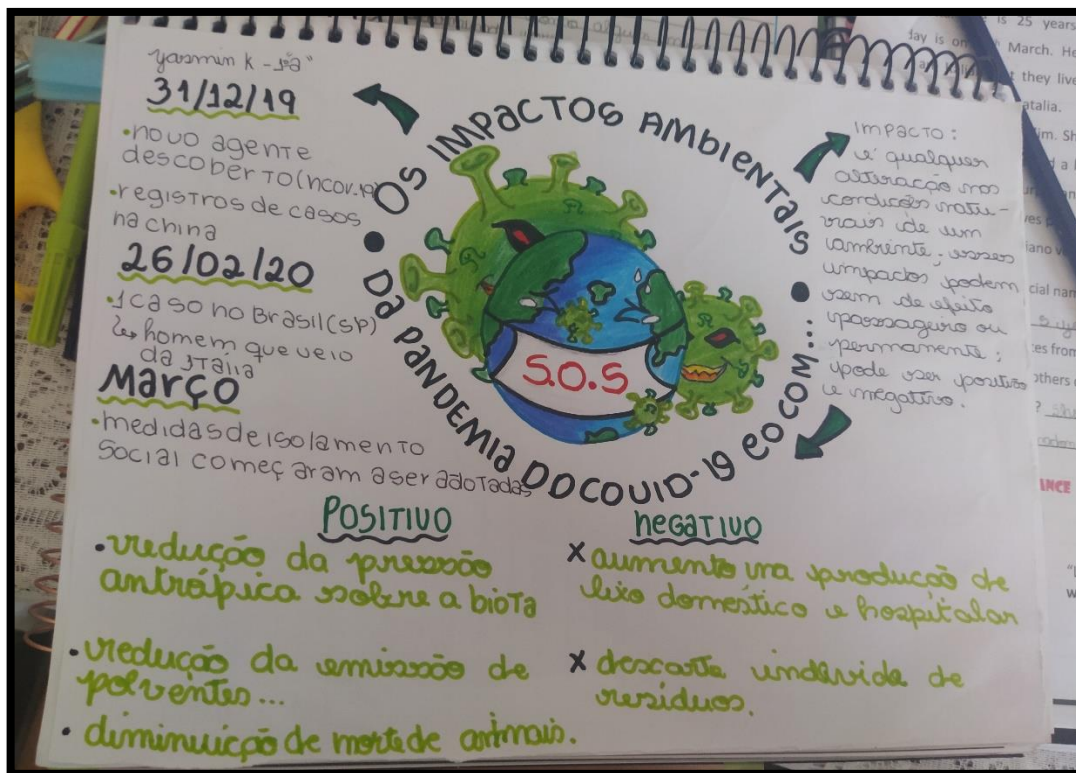 yasmin k - 1ª a"
31/12/19
•novo agente
descoberto (ncov-19)
•registros de casos
na china
26/02/20
•1 caso no Brasil (SP)
↳ homem que veio
da Itália
Março
•medidas de isolamento
social começaram a ser adotadas
• Os impactos ambientais •
da pandemia do covid-19 eocom...
S.O.S
Impacto:
é qualquer
alteração nas
condições natu-
rais de um
ambiente, esses
impactos podem
serem de efeito
passageiro ou
permanente;
pode ser positivo
e negativo.
Positivo
•redução da pressão
antrópica sobre a biota
•redução da emissão de
poluentes...
• diminuição de morte de animais.
negativo
x aumento na produção de
lixo doméstico e hospitalar
x descarte indevido de
resíduos.
is 25 years
day is on March. He
they live
atalia.
im. Sh
ves
iano
cial nam
es from
others
ANCE